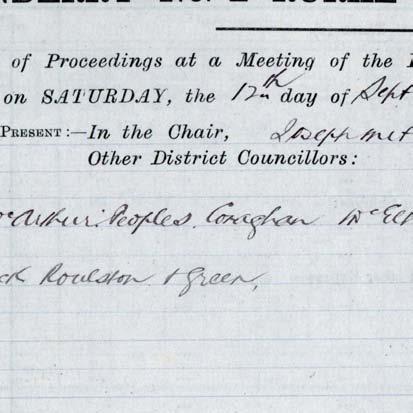 of Proceedings at a Meeting of the
on SATURDAY, the 12th day of Sept
PRESENT:—In the Chair, Joseph
Other District Councillors:
McArthur. Peoples. Conaghan McEl
Roulston & Green,